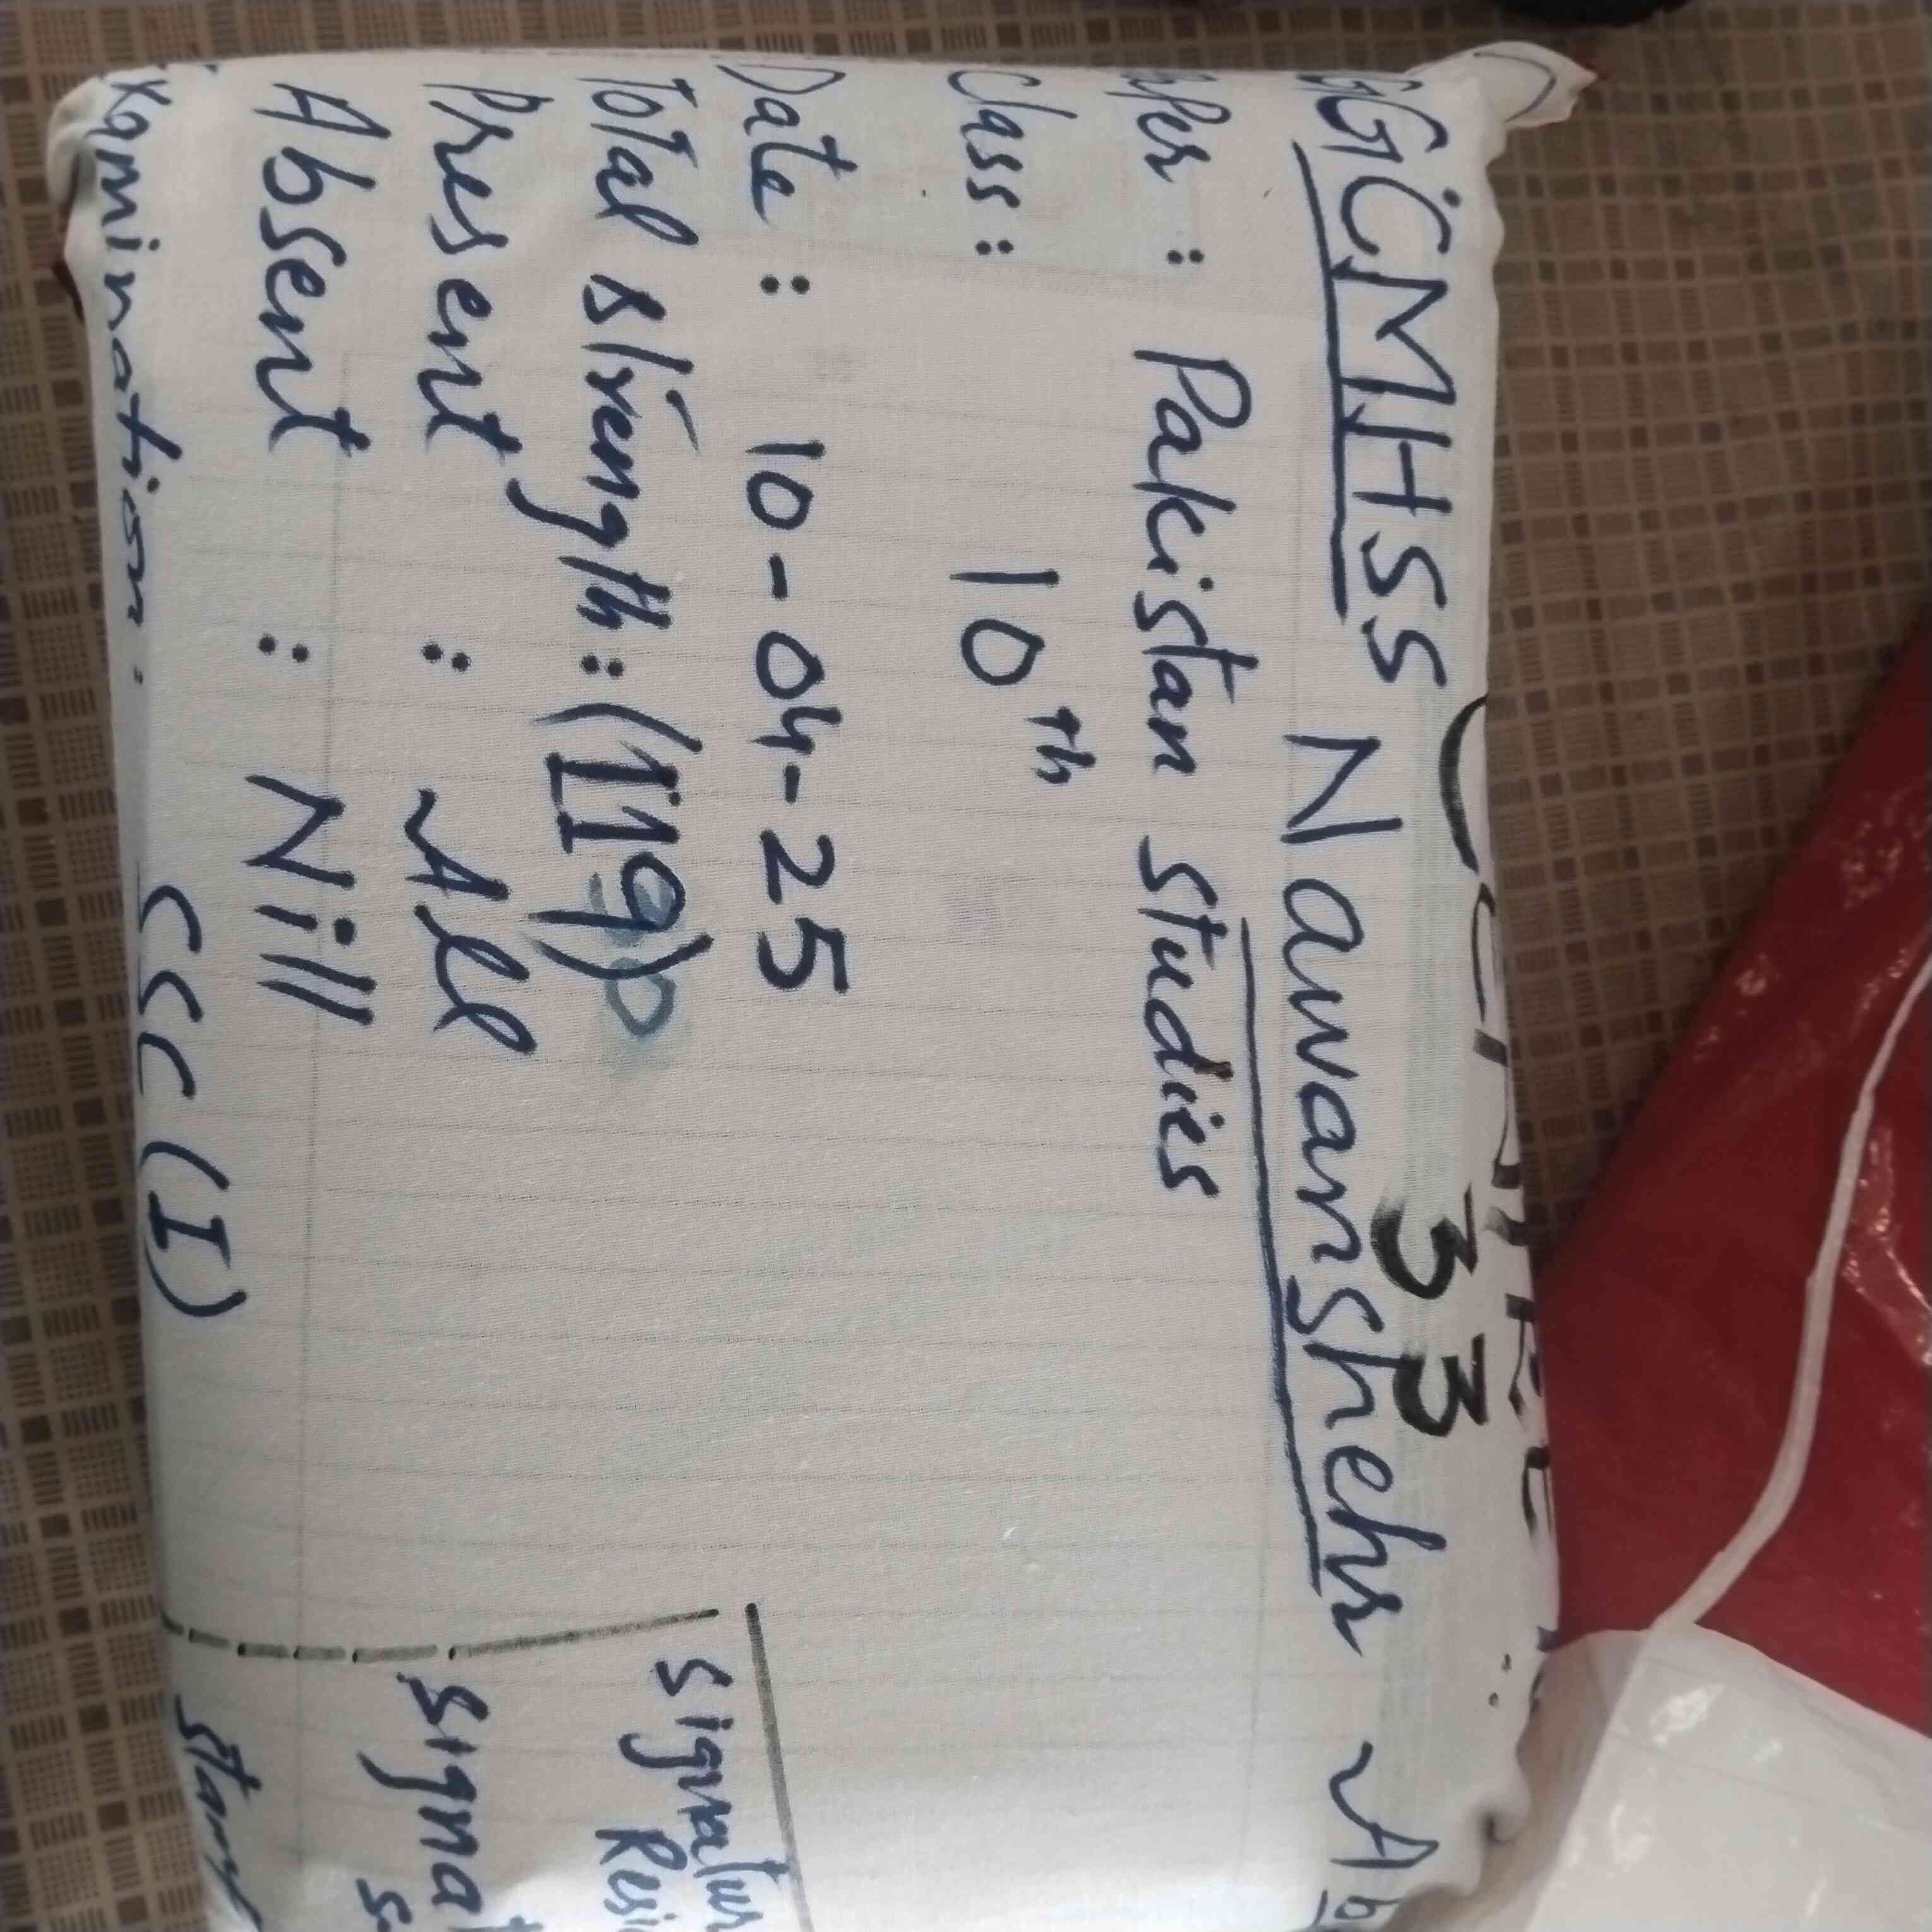 33
GGCMHSS Nawanshehr Ab
Paper : Pakistan studies
Class : 10th
Date : 10-04-25
Total strength : (119)
Present : All
Absent : Nill
Examination : SSC (I)
Signatur
Resi
Signat
S
Start